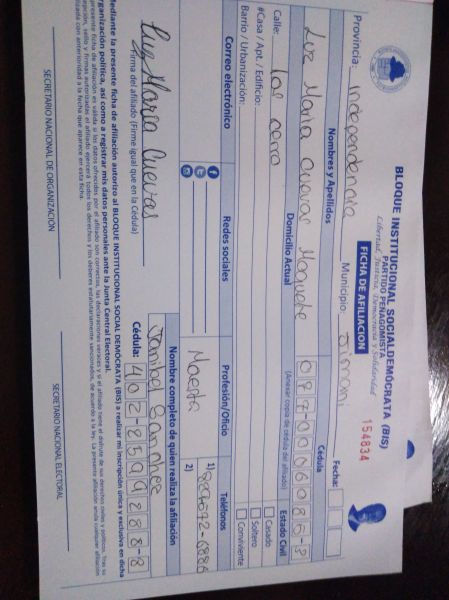 BLOQUE INSTITUCIONAL SOCIALDEMÓCRATA (BIS)
PARTIDO PEÑAGOMISTA
Libertad, Justicia, Democracia y Solidaridad
FICHA DE AFILIACIÓN
154834
Provincia: Independencia Municipio: Jimani Fecha:
Nombres y Apellidos Cédula
Luz Maria Cuevas
Domicilio Actual (Anexar copia de cédula del afiliado) Estado Civil
Calle: Las
#Casa / Apt. / Edificio:
Barrio / Urbanización:
Casado
Soltero
Conviviente
Correo electrónico Redes sociales Profesión/Oficio Teléfonos
1)
2)
Luz Maria Cuevas
Firma del afiliado (Firme igual que en la Cédula)
Nombre completo de quien realiza la afiliación
Sanchez
Cédula: 402-2599288-8
Mediante la presente ficha de afiliación autorizo al BLOQUE INSTITUCIONAL SOCIAL DEMÓCRATA (BIS) a realizar mi inscripción única y exclusiva en dicha
organización política, así como a registrar mis datos personales ante la Junta Central Electoral.
SECRETARIO NACIONAL DE ORGANIZACIÓN SECRETARIO NACIONAL ELECTORAL